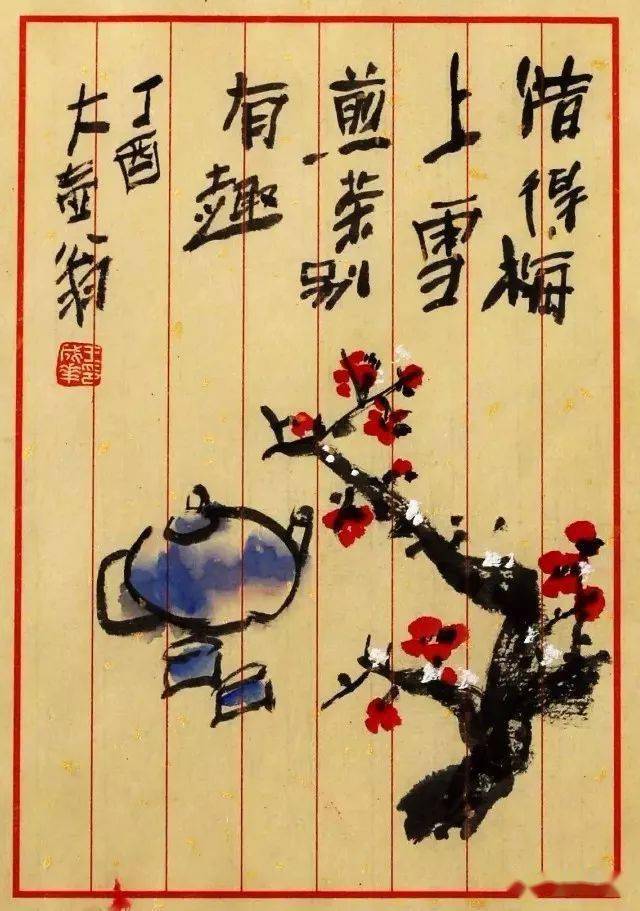 借得梅
上雪
煎茶别
有趣
丁酉
大壶翁